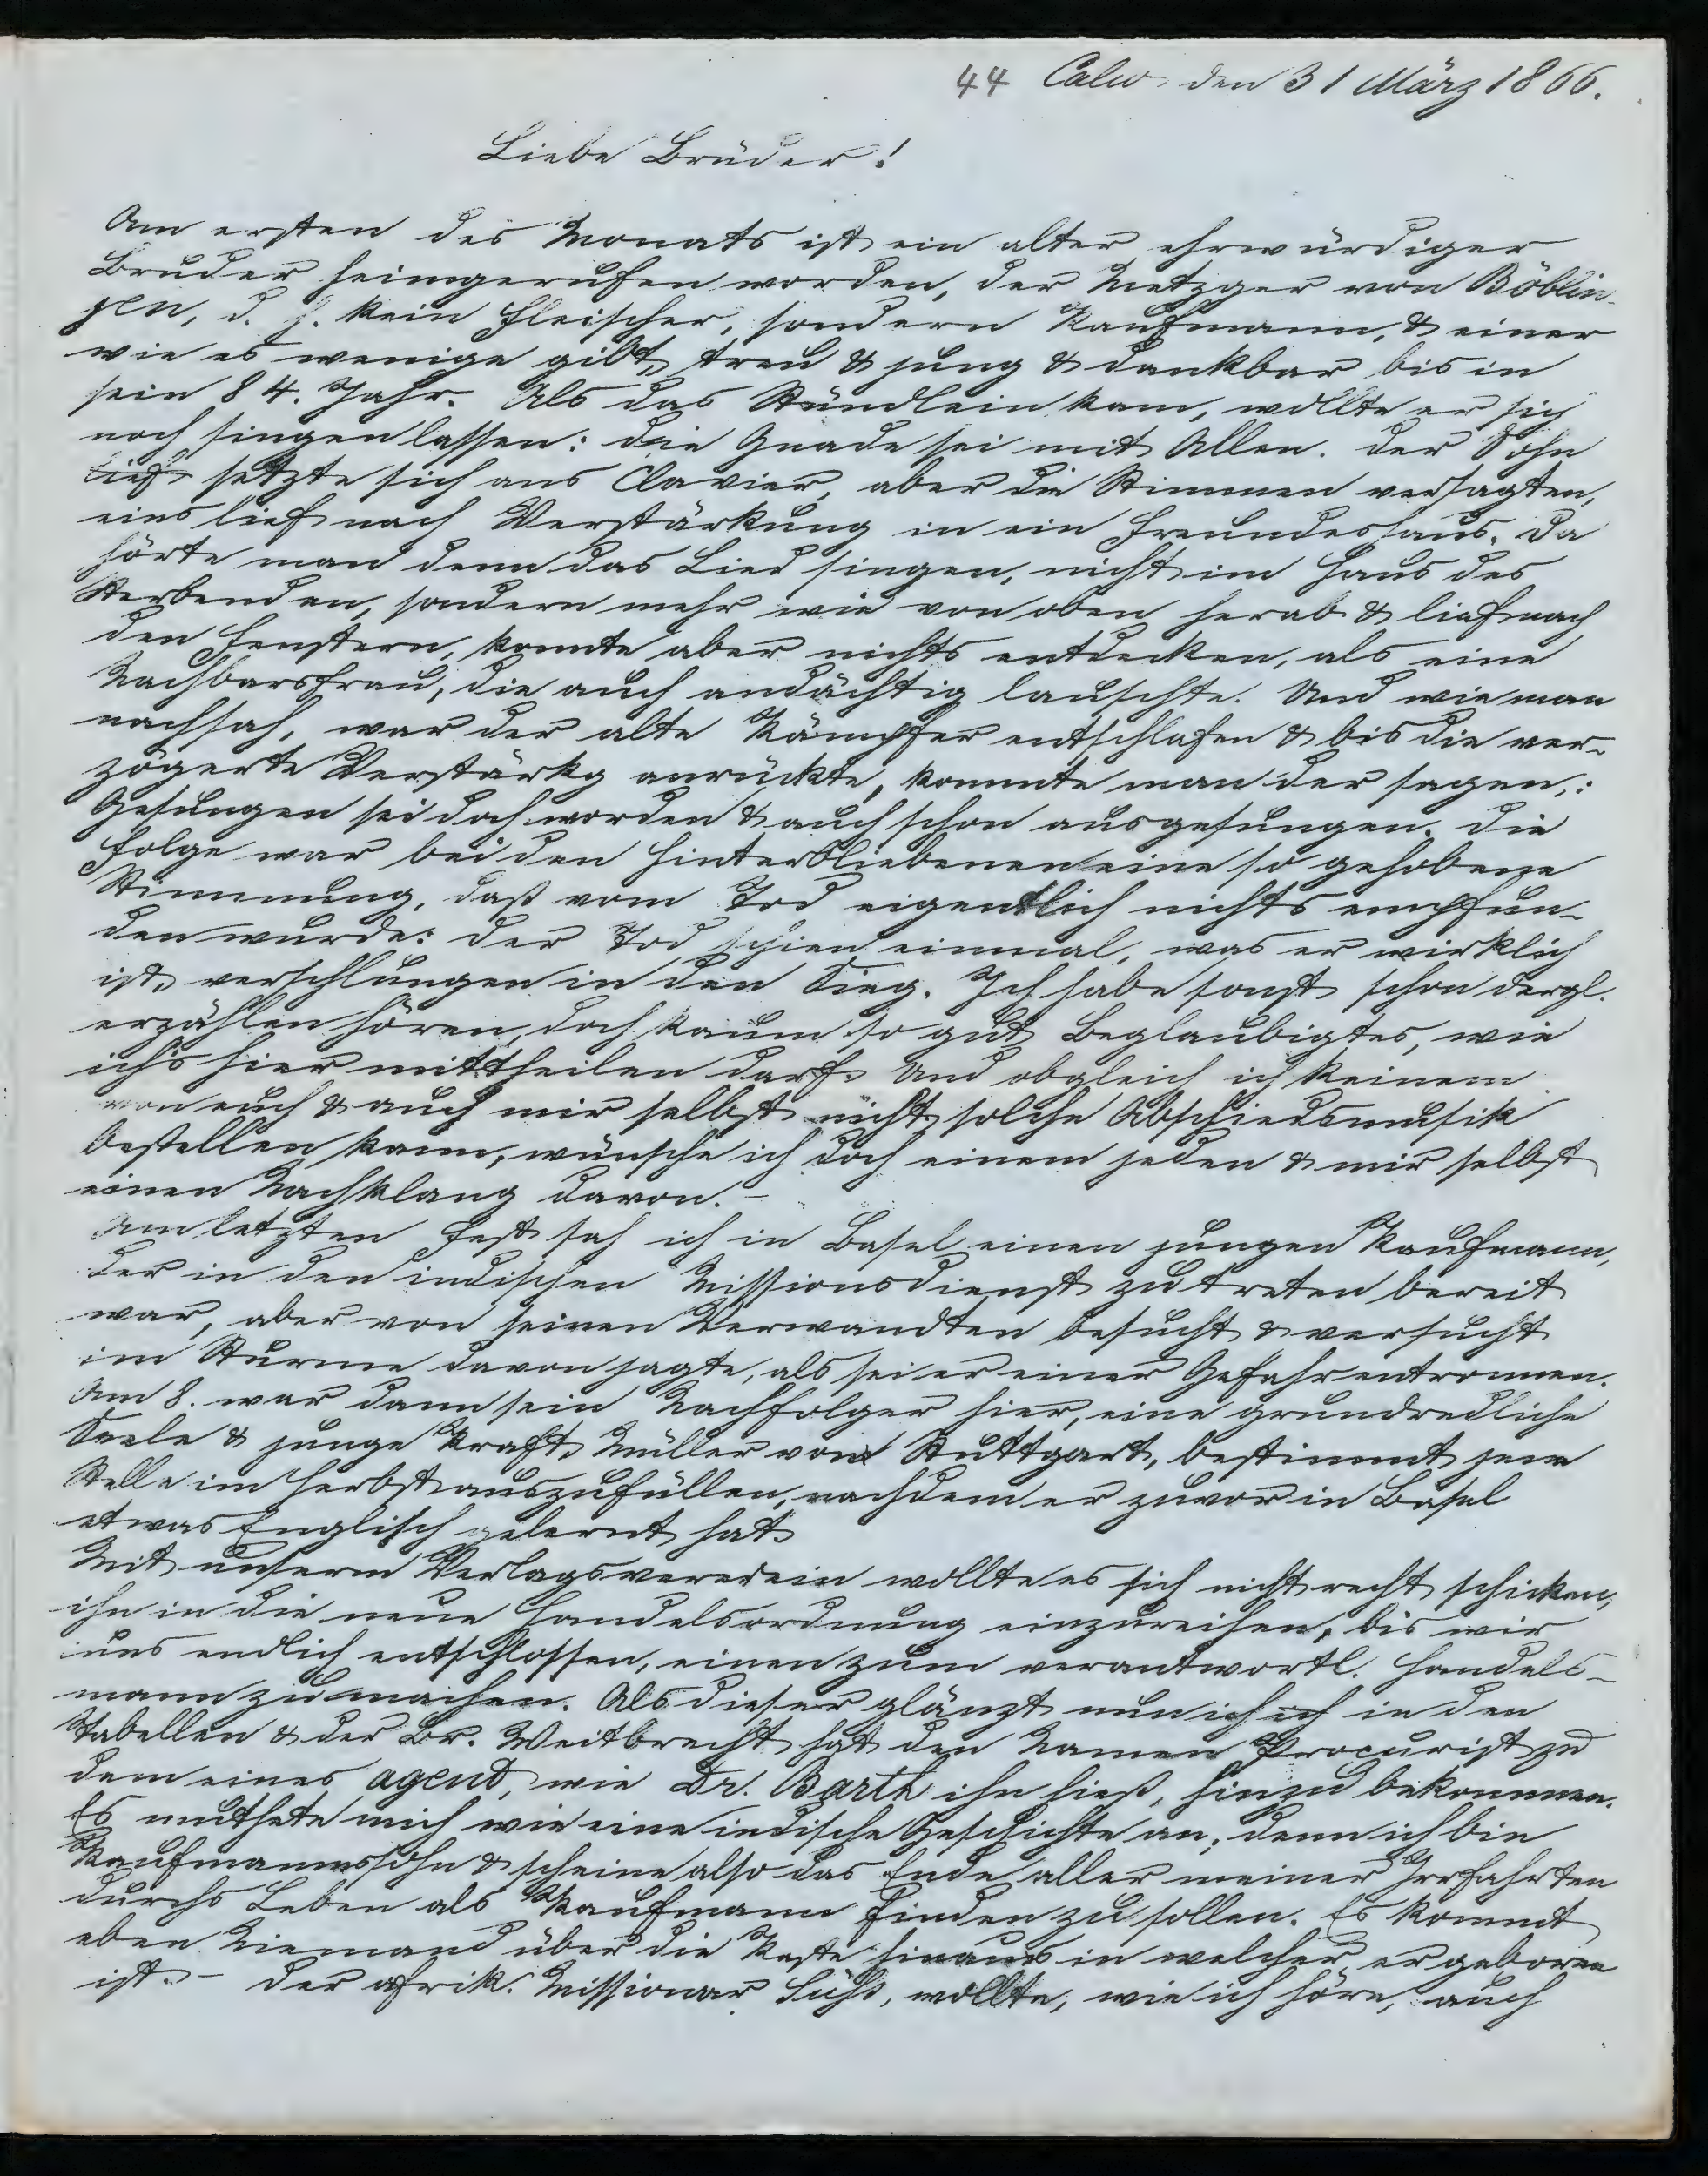 44 Calw den 31 März 1866.
Liebe Brüder!
Am ersten des Monats ist ein alter ehrwürdiger
Bruder heimgerufen worden, der Metzger von Böblin-
gen, d. h. kein Fleischer, sondern Kaufmann, & einer
wie es wenige gibt, treu & jung & dankbar bis in
sein 84. Jahr. Als das Stündlein kam, wollte er sich
noch singen lassen: die Gnade sei mit Allen. Der Sohn
lief setzte sich ans Clavier, aber die Stimmen versagten,
eins lief nach Verstärkung in ein Freundeshaus. Da
hörte man denn das Lied singen, nicht im Haus des
Sterbenden, sondern mehr wie von oben herab & lief nach
den Fenstern, konnte aber nichts entdecken, als eine
Nachbarsfrau, die auch andächtig lauschte. Und wie man
nachsah, war der alte Kämpfer entschlafen & bis die ver-
zögerte Verstärkg anrückte, konnte man der sagen,:
Gesungen sei doch worden & auch schon ausgesungen. Die
Folge war bei den Hinterbliebenen eine so gehobene
Stimmung, daß vom Tod eigentlich nichts empfun-
den wurde: der Tod schien einmal, was er wirklich
ist, verschlungen in den Sieg. Ich habe sonst schon dergl.
erzählen hören, doch kaum so gut Beglaubigtes, wie
ichs hier mittheilen darf. Und obgleich ich keinem
von euch & auch mir selbst nicht solche Abschiedsmusik
bestellen kann, wünsche ich doch einem jeden & mir selbst
einen Nachklang davon. -
Am letzten Fest sah ich in Basel einen jungen Kaufmann,
der in den indischen Missionsdienst zu treten bereit
war, aber von seinen Verwandten besucht & versucht
im Sturme davon jagte, als sei er einer Gefahr entronnen.
Am 8. war dann sein Nachfolger hier, eine grundredliche
Seele & junge Kraft, Müller von Stuttgart, bestimmt jene
Stelle im Herbst auszufüllen, nachdem er zuvor in Basel
etwas Englisch gelernt hat.
Mit unserm Verlagsverein wollte es sich nicht recht schicken,
ihn in die neue Handelsordnung einzureihen, bis wir
uns endlich entschlossen, einen zum verantwortl. Handels-
mann zu machen. Als dieser glänzt nun ich ich in den
Tabellen & der Br. Weitbrecht hat den Namen Procurist zu
dem eines agent, wie Dr. Barth ihn hieß, hinzu bekommen.
Es muthete mich wie eine indische Geschichte an; denn ich bin
Kaufmannssohn & scheine also das Ende aller meiner Irrfahrten
durchs Leben als Kaufmann finden zu sollen. Es kommt
eben Niemand über die Kaste hinaus in welcher er geboren
ist. - Der afrik. Missionar Süß, wollte, wie ich höre, auch